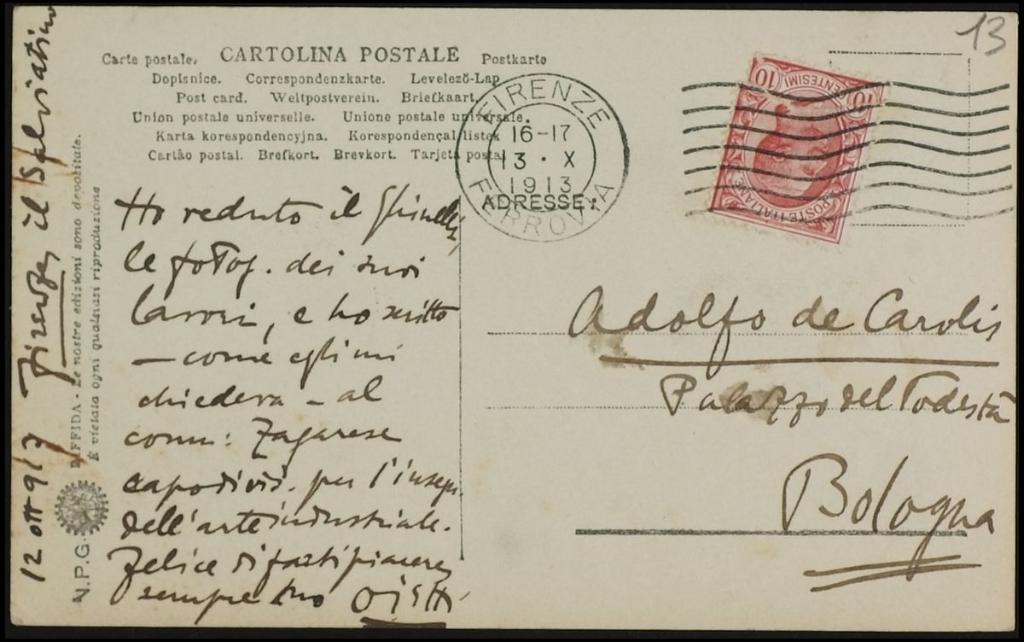 13
Carte postale. CARTOLINA POSTALE Postkarte
Dopisnice. Correspondenzkarte. Levelező-Lap
Post card. Weltpostverein. Briefkaart.
Union postale universelle. Unione postale universale.
Karta korespondencyjna. Korespondençal listek
Cartão postal. Brefkort. Brevkort. Tarjeta postal
FIRENZE
16-17
13 · X
1913
FERROVIA
ADRESSE:
10 CENTESIMI 10
POSTE ITALIANE
12 ott 913 Firenze il Salviatino
N.P.G. DIFFIDA - Le nostre edizioni sono depositate.
È vietata ogni qualsiasi riproduzione
Ho veduto il
le fotog. dei suoi
lavori, e ho scritto
— come egli mi
chiedeva — al
comm: Zagarese
capodivis. per l'insegn.
dell'arte industriale.
Felice di farti piacere
sempre tuo Ojetti
Adolfo de Carolis
Palazzo del Podestà
Bologna